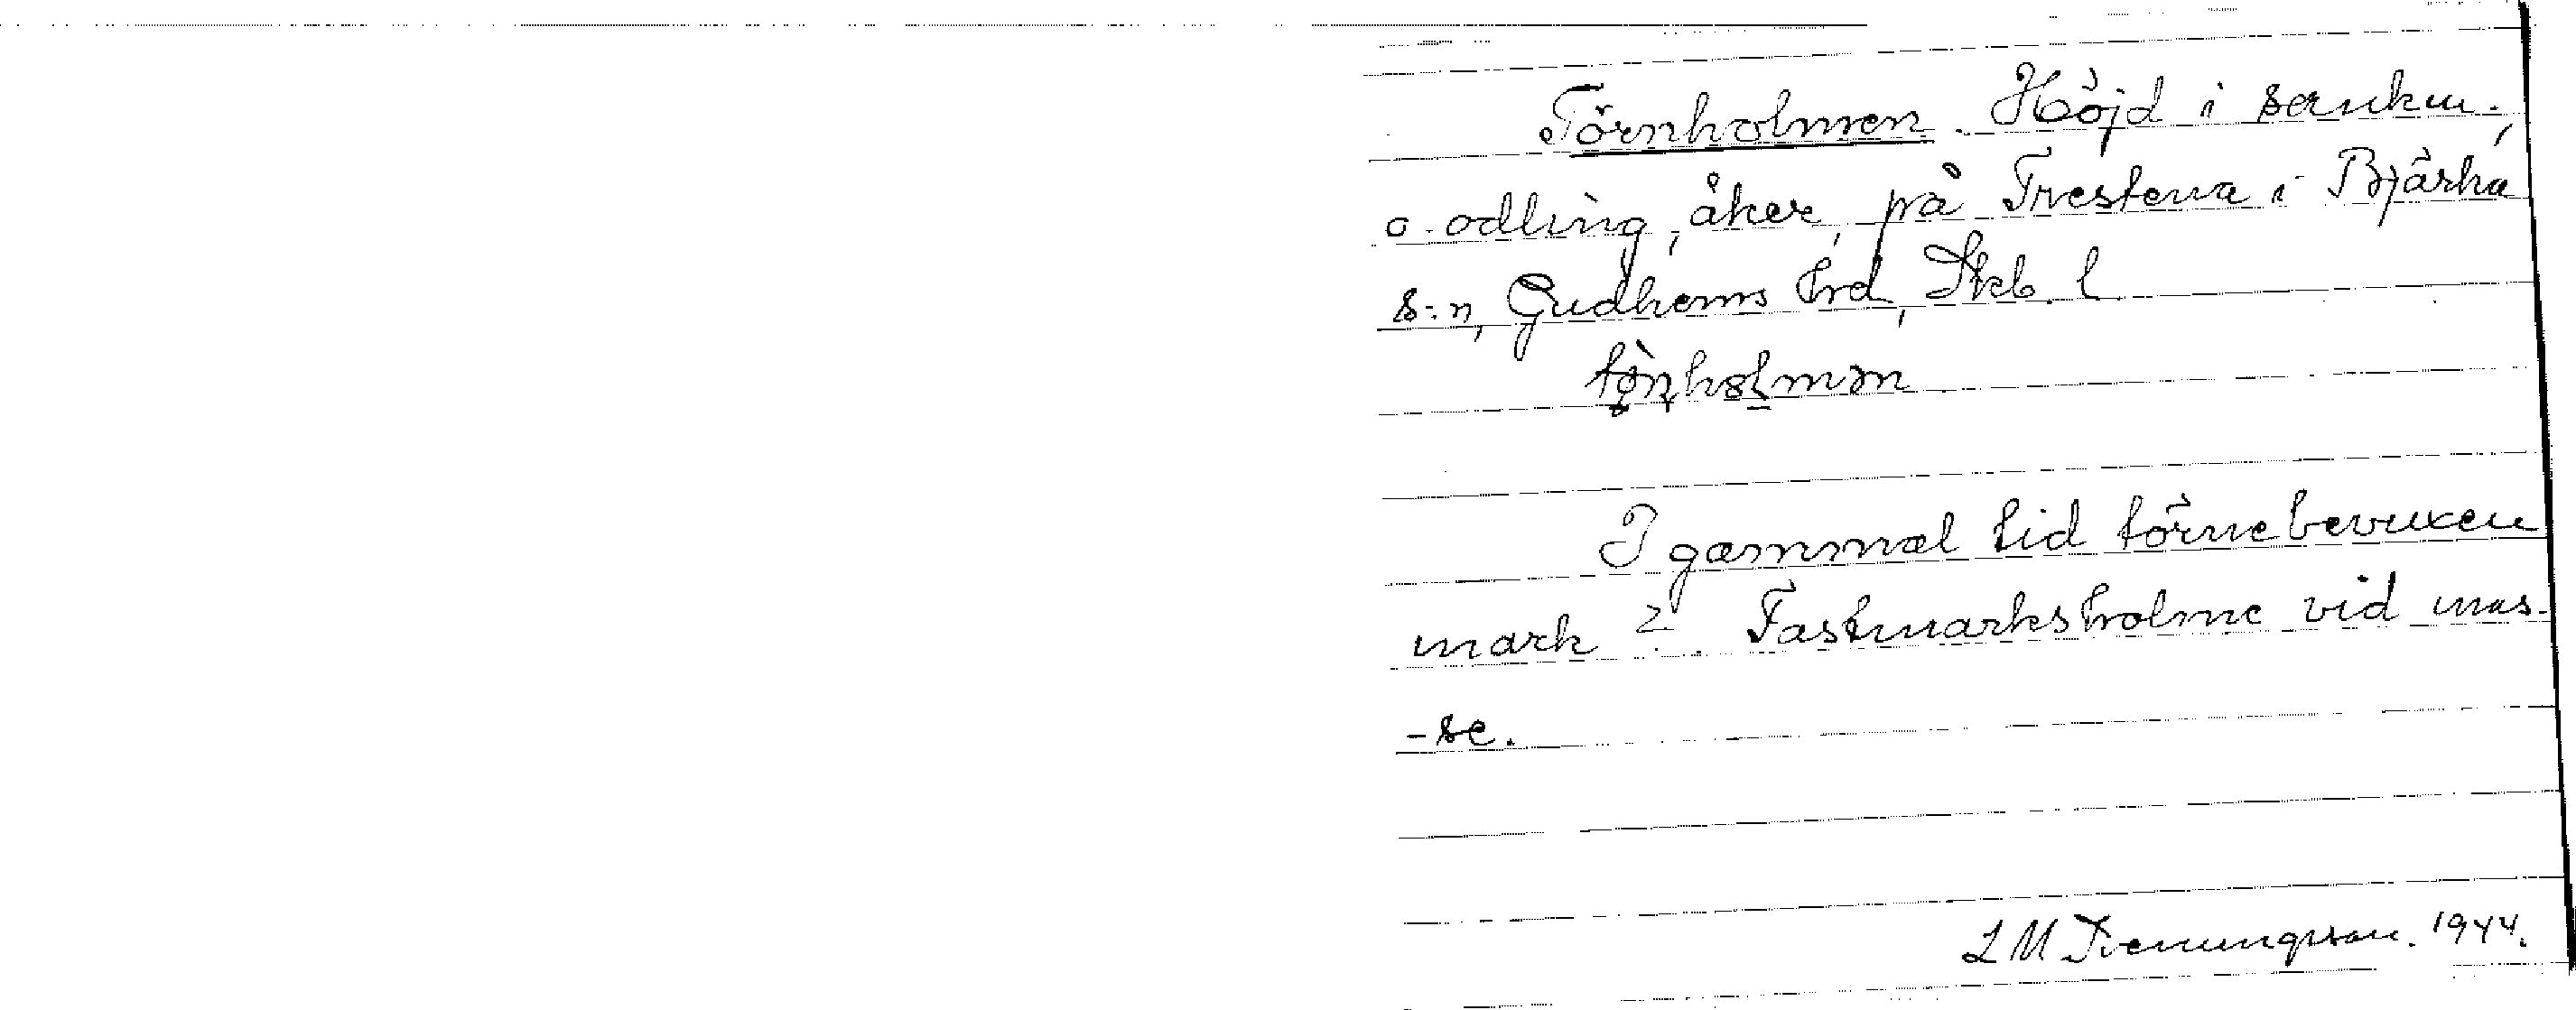 Törnholmen. Höjd i sankm.,
o. odling, åker, på Trestena i Bjärka
s:n, Gudhems hrd, Skb. l.
I gammal tid törnebevuxen
mark? Fastmarksholme vid mos-
-se.
L M 1944.